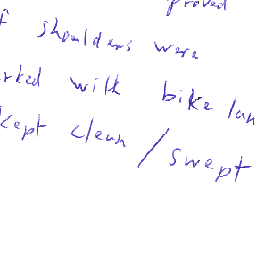 proved
shoulders were
with bike
kept clean / swept